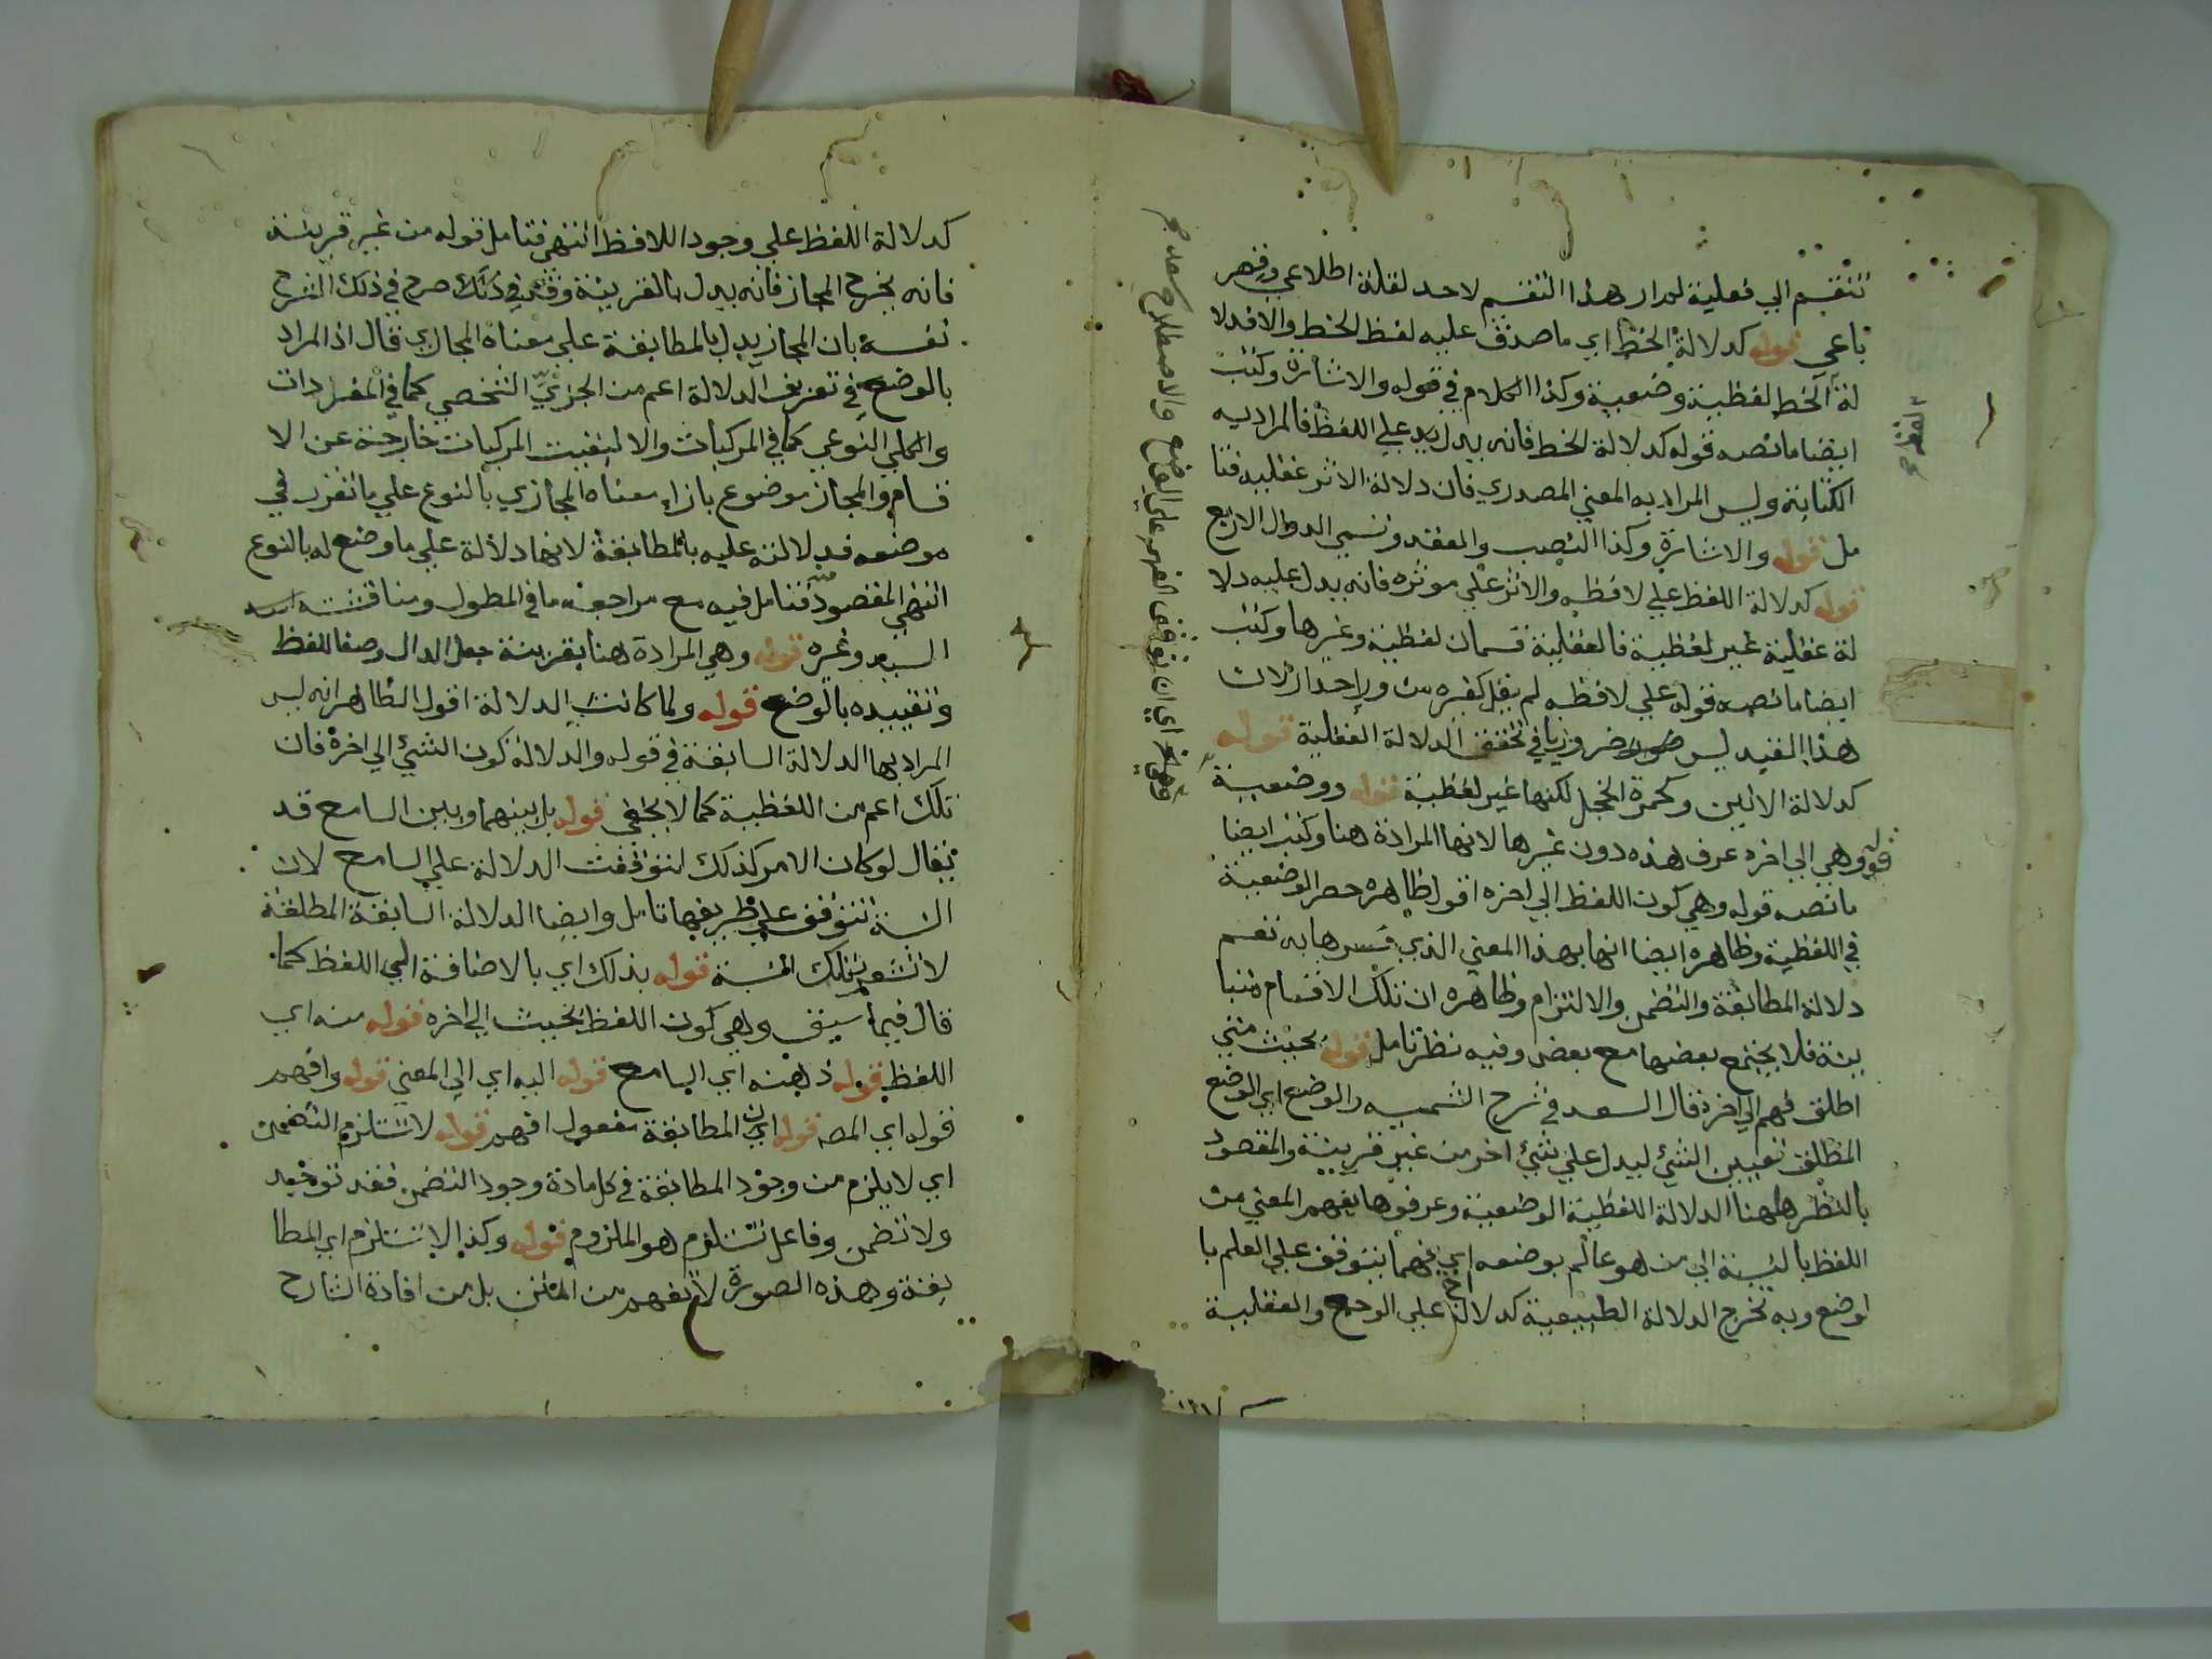 تنقسم الي فعلية لم ار هذا التقسيم لاحد لقلة اطلاعي وقصر
باعي قوله كدلالة الخط اي ما صدق عليه لفظ الخط والا فدلا
لة الخط لفظية وضعية وكذا الكلام في قوله والاشارة وكتب
ايضا ما نصه قوله كدلالة الخط فانه يدل علي اللفظ فالمراد به
الكتابة وليس المراد به المعني المصدري فان دلالة الاثر عقلية فتا
مل قوله والاشارة وكذا النصب والعقد وتسمي الدوال الاربع
قوله كدلالة اللفظ علي لافظه والاثر علي موثره فانه يدل عليه دلا
لة عقلية غير لفظية فالعقلية قسمان لفظية وغيرها وكتب
ايضا ما نصه قوله علي لافظه لم يقل كغيره من ورا جدار لان
هذا القيد ليس ضروريا في تحقق الدلالة العقلية قوله
كدلالة الانين وكحمرة الخجل لكنها غير لفظية قوله ووضعية
قوله وهي الي اخره عرف هذه دون غيرها لانها المرادة هنا وكتب ايضا
ما نصه قوله وهي كون اللفظ الي اخره اقول ظاهره حصر الوضعية
في اللفظية وظاهره ايضا انها بهذا المعني الذي فسرها به تعم
دلالة المطابقة والتضمن والالتزام وظاهره ان تلك الاقسام متبا
ينة فلا يجتمع بعضها مع بعض وفيه نظر تامل قوله بحيث متي
اطلق فهم الي اخره قال السعد في شرح الشمسيه والوضع اي الوضع
المطلق تعيين الشئ ليدل علي شئ اخر من غير قرينة والمقصود
بالنظر هاهنا الدلالة اللفظية الوضعية وعرفوها بفهم المعني من
اللفظ بالنسبة الي من هو عالم بوضعه اي فهما يتوقف علي العلم با
لوضع وبه تخرج الدلالة الطبيعية كدلالة اخ علي الوجع والعقلية
اللفظ صح
اي ان توقف الفهم علي الوضع والاصطلاح سعد صح
كدلالة اللفظ علي وجود اللافظ انتهي فتامل قوله من غير قرينة
فانه يخرج المجاز فانه يدل بالقرينة وقد صرح في ذلك الشرح
نفسه بان المجاز يدل بالمطابقة علي معناه المجازي قال اذ المراد
بالوضع في تعريف الدلالة اعم من الجزئي الشخصي كما في المفردات
والكلي النوعي كما في المركبات والا لبقيت المركبات خارجة عن الا
قسام والمجاز موضوع بازاء معناه المجازي بالنوع علي ما تقرر في
موضعه فدلالته عليه بالمطابقة لانها دلالة علي ما وضع له بالنوع
انتهي المقصود منه فتامل فيه مع مراجعة ما في المطول ومناقشته
السيد وغيره قوله وهي المرادة هنا بقرينة جعل الدال وصفا للفظ
وتقييده بالوضع قوله ولما كانت الدلالة اقول الظاهر انه ليس
المراد بها الدلالة السابقة في قوله والدلالة كون الشئ الي اخره فان
تلك اعم من اللفظية كما لا يخفي قوله بل بينهما وبين السامع قد
يقال لو كان الامر كذلك لتوقفت الدلالة علي السامع لان
النسبة تتوقف علي طرفيها تامل وايضا الدلالة السابقة المطلقة
لا تشعر بتلك النسبة قوله بذلك اي بالاضافة الي اللفظ كما
قال فيما سبق وهي كون اللفظ بحيث الي اخره قوله منه اي
اللفظ قوله ذهنه اي السامع قوله اليه اي الي المعني قوله وافهم
قوله اي المص قوله ان المطابقة مفعول افهم قوله لا تستلزم التضمن
اي لا يلزم من وجود المطابقة في كل مادة وجود التضمن فقد توجد
ولا تضمن وفاعل تستلزم هو الملزوم قوله وكذا لا تستلزم اي المطا
بقة وهذه الصورة لا تفهم من المتن بل من افادة الشارح